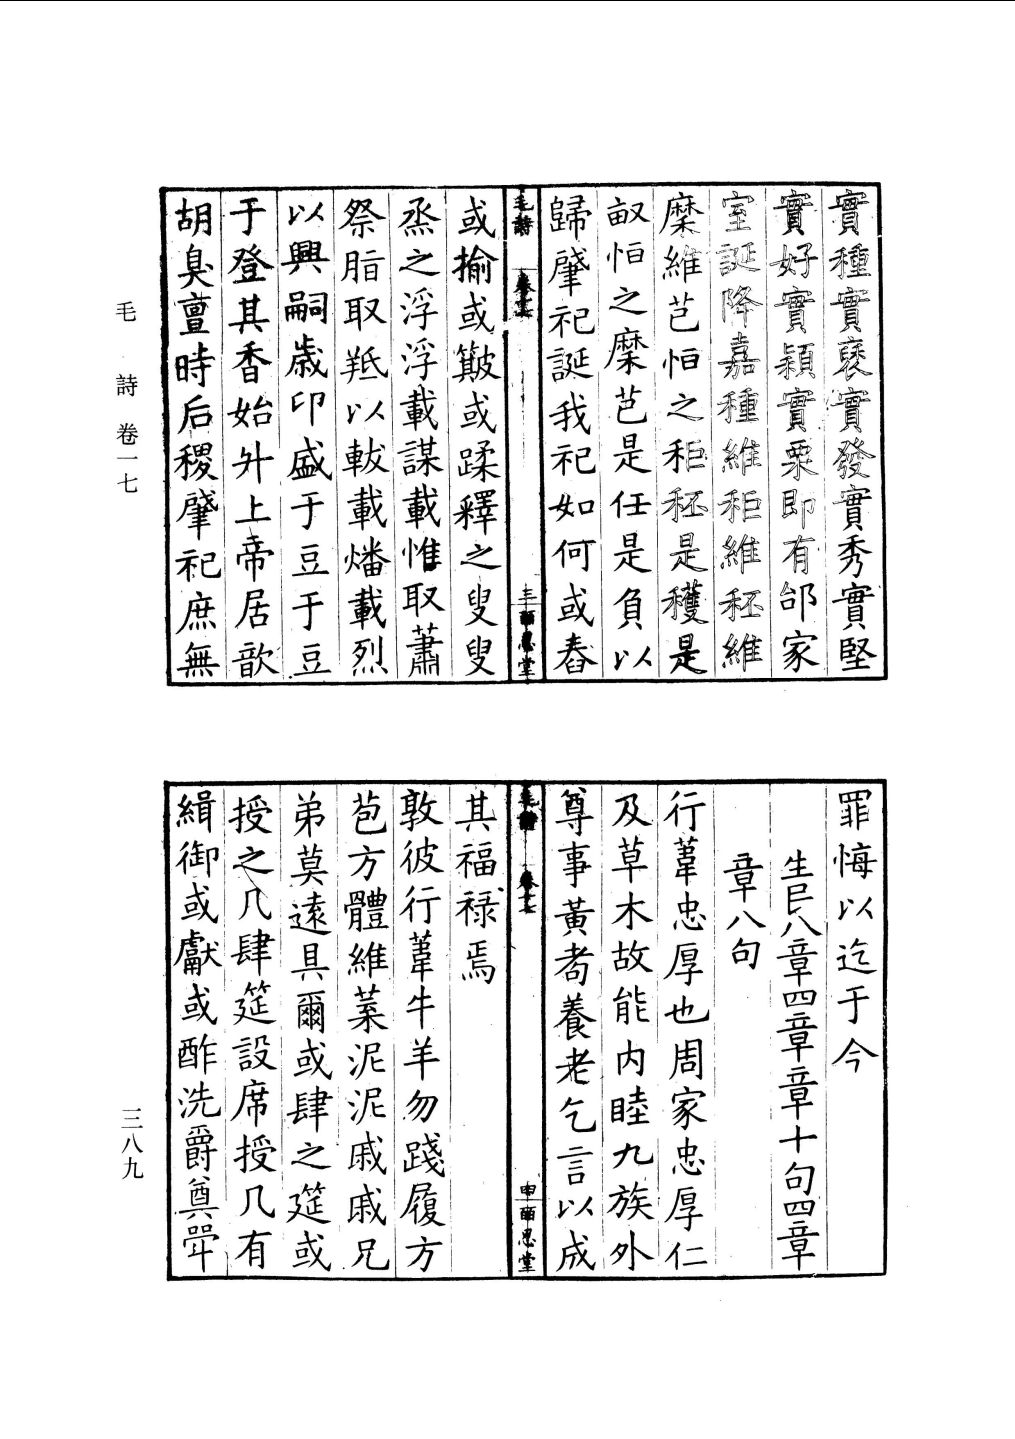 實種實襃實發實秀實堅
實好實穎實栗即有邰家
室誕降嘉種維秬維秠維
穈維芑恒之秬秠是穫是
畝恒之穈芑是任是負以
歸肇祀誕我祀如何或舂
毛詩 卷十七 三 酉思堂
或揄或簸或蹂釋之叟叟
烝之浮浮載謀載惟取蕭
祭脂取羝以軷載燔載烈
以興嗣歲卬盛于豆于豆
于登其香始升上帝居歆
胡臭亶時后稷肇祀庶無
毛詩卷一七
罪悔以迄于今
生民八章四章章十句四章
章八句
行葦忠厚也周家忠厚仁
及草木故能內睦九族外
尊事黃耇養老乞言以成
毛詩 卷十七 四 酉思堂
其福祿焉
敦彼行葦牛羊勿踐履方
苞方體維葉泥泥戚戚兄
弟莫遠具爾或肆之筵或
授之几肆筵設席授几有
緝御或獻或酢洗爵奠斝
三八九